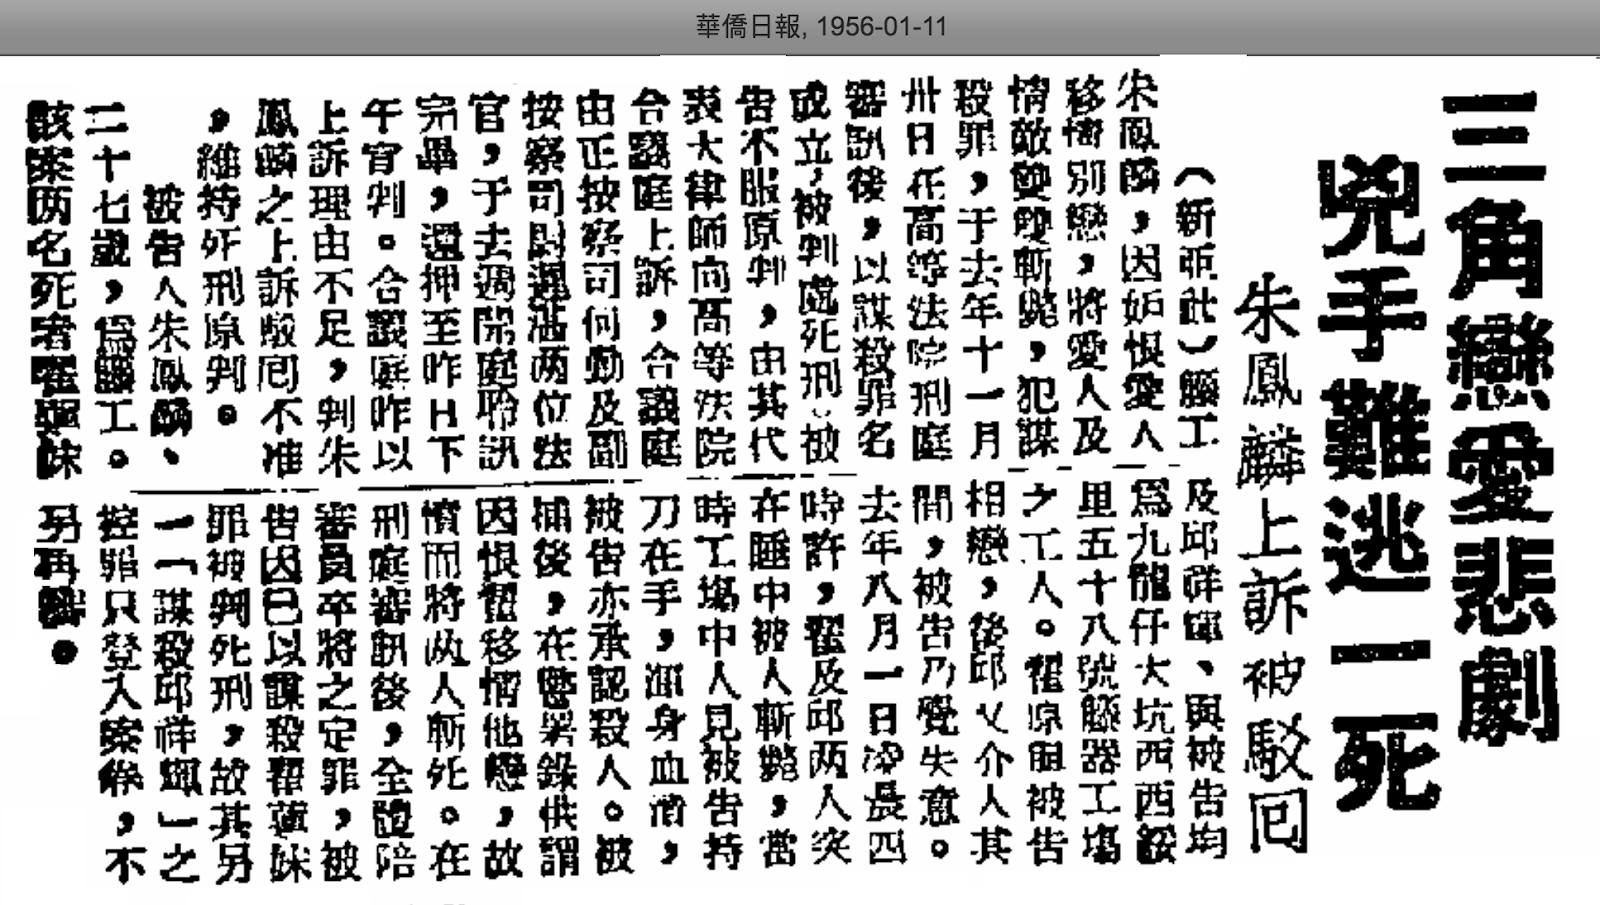 華僑日報, 1956-01-11
三角戀愛悲劇
兇手難逃一死
朱鳳麟上訴被駁回
（新亞社）籐工
朱鳳麟，因妒恨愛人
移情別戀，將愛人及
情敵雙雙斬斃，犯謀
殺罪，于去年十一月
卅日在高等法院刑庭
審訊後，以謀殺罪名
成立，被判處死刑、被
告不服原判，由其代
表大律師向高等法院
合議庭上訴，合議庭
由正按察司何勳及副
按察司尉遲滿两位法
官，于去週開庭聆訊
完畢，還押至昨日下
午宣判。合議庭昨以
上訴理由不足，判朱
鳳麟之上訴駁囘不准
，維持死刑原判。
被告人朱鳳麟、
二十七歲，為籐工。
該案两名死者翟蓮妹
及邱祥輝、與被告均
為九龍仔大坑西西毅
里五十八號籐器工塲
之工人。翟原與被告
相戀，後邱乂介人其
間，被告乃覺失意。
去年八月一日凌晨四
時許，翟及邱两人突
在睡中被人斬斃，當
時工塲中人見被告持
刀在手，渾身血漬，
被告亦承認殺人。被
捕後，在警署錄供謂
因恨翟移情他戀，故
憤而將两人斬死。在
刑庭審訊後，全體陪
審員卒將之定罪，被
告因已以謀殺翟蓮妹
罪被判死刑，故其另
一「謀殺邱祥輝」之
控罪只登入案卷，不
另再審。